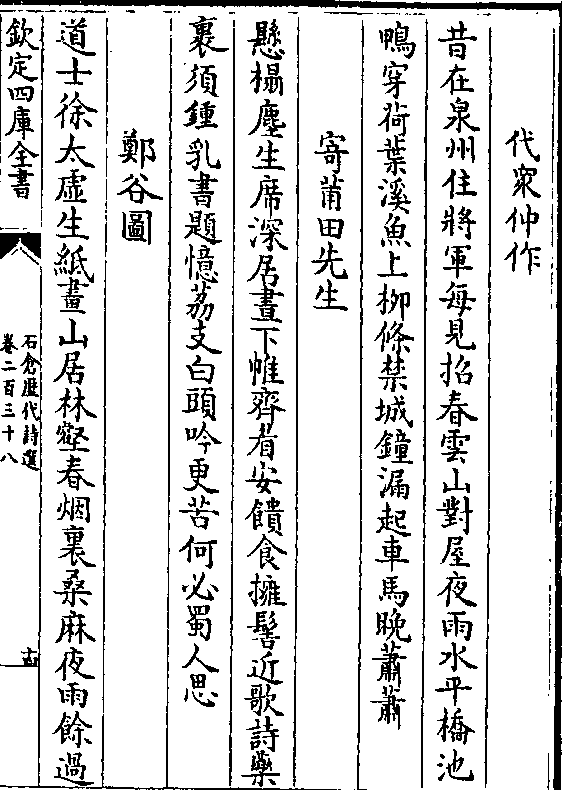 代衆仲作
昔在泉州住將軍每見招春雲山對屋夜雨水平橋池
鴨穿荷葉溪魚上柳條禁城鐘漏起車馬晚蕭蕭
寄莆田先生
懸榻塵生席深居晝下帷齊眉安饋食擁髻近歌詩藥
裹須鍾乳書題憶荔支白頭吟更苦何必蜀人思
鄭谷圖
道士徐太虛生紙畫山居林壑春烟裏桑麻夜雨餘過
欽定四庫全書
石倉歷代詩選
卷二百三十八
十四